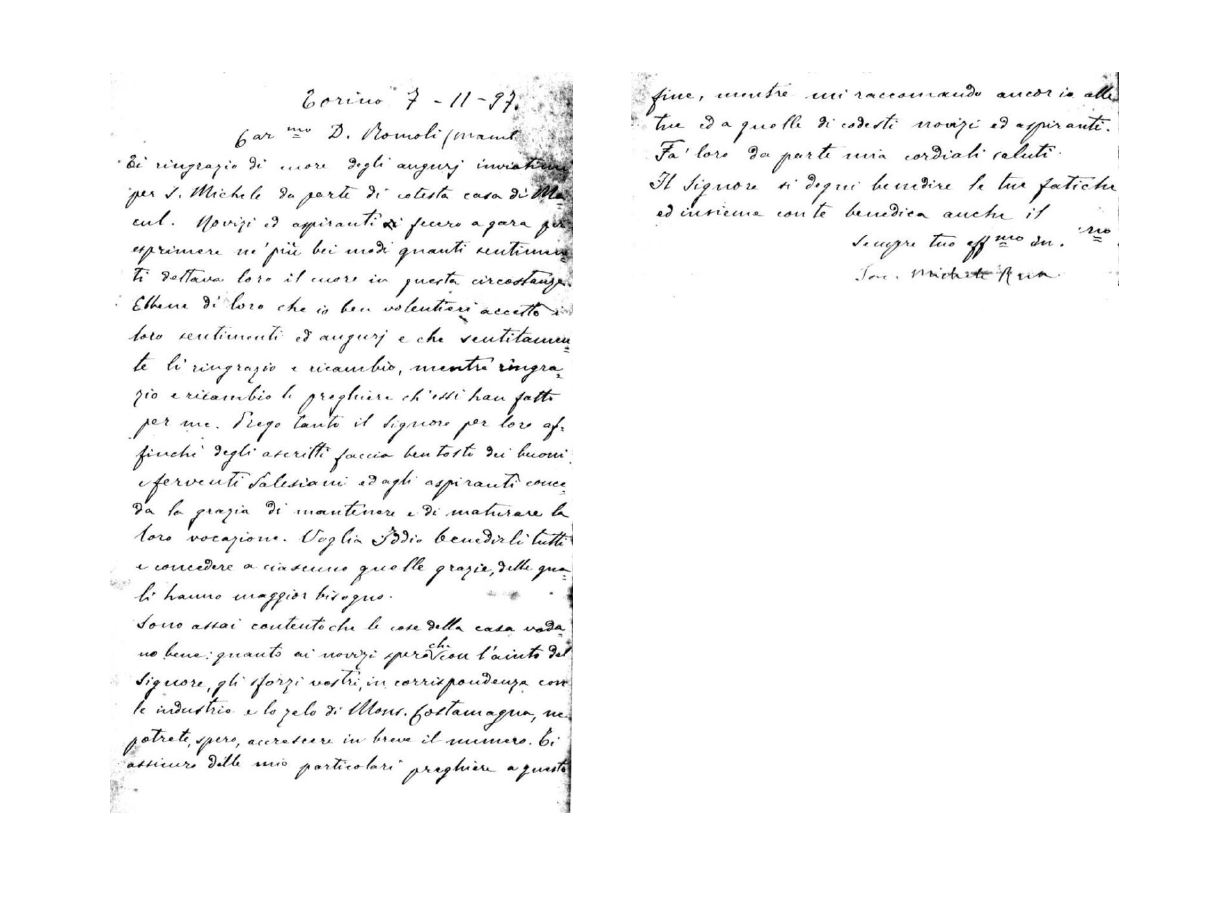 Torino 7-11-97.
Car mo D. Romoli
Ti ringrazio di cuore degli augurj inviatimi
per S. Michele da parte di cotesta casa di Ma
cul. Novizi ed aspiranti fecero a gara per
esprimere ne' più bei modi quanti sentimen=
ti dettava loro il cuore in questa circostanza.
Ebbene di' loro che io ben volentieri accetto i
loro sentimenti ed augurj e che sentitamen=
te li ringrazio e ricambio, mentre ringra=
zio e ricambio le preghiere ch'essi han fatto
per me. Prego tanto il Signore per loro af=
finché degli ascritti faccia ben tosto dei buoni
e ferventi Salesiani ed agli aspiranti conce=
da la grazia di mantenere e di maturare la
loro vocazione. Voglia Iddio benedirli tutti
e concedere a ciascuno quelle grazie, delle qua=
li hanno maggior bisogno.
Sono assai contento che le cose della casa vada=
no bene: quanto ai novizi spero che con l'aiuto del
Signore, gli sforzi vostri, in corrispondenza con
le industrie e lo zelo di Mons. Costamagna, ne
potrete, spero, accrescere in breve il numero. Ti
assicuro delle mie particolari preghiere a questo
fine, mentre mi raccomando ancor io alle
tue ed a quelle di codesti novizi ed aspiranti.
Fa' loro da parte mia cordiali saluti.
Il Signore si degni benedire le tue fatiche
ed insieme con te benedica anche il
sempre tuo aff mo in. no
Sac. Michele Rua